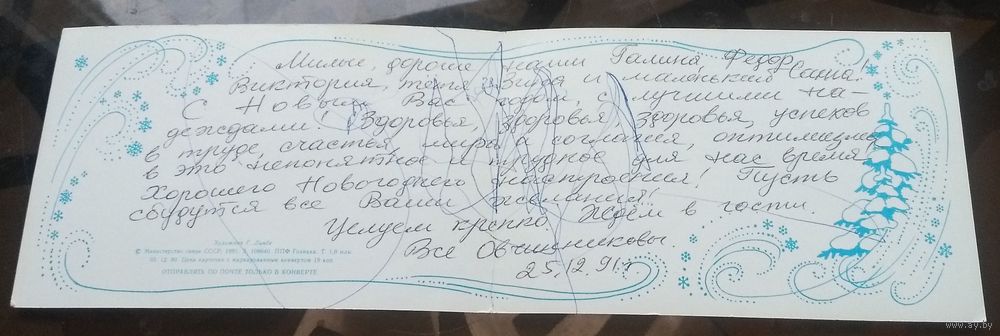 Милые, дорогие наши Галина, Федор,
Виктория, тетя Зина и маленький Саша!
С Новым Вас годом, с лучшими на-
деждами! Здоровья, здоровья, здоровья, успехов
в труде, счастья, мира и согласия, оптимизма
в это непонятное и трудное для нас время!
Хорошего Новогоднего настроения! Пусть
сбудутся все Ваши желания!
Целуем крепко. Ждём в гости.
Все Овчинниковы
25.12.91 г
Художник Г.
© Министерство связи СССР. 1991. З. 108640. ППФ Гознака. Т. 1,0 млн.
05. 12. 90. Цена карточки с маркированным конвертом 19 коп.
ОТПРАВЛЯТЬ ПО ПОЧТЕ ТОЛЬКО В КОНВЕРТЕ
www.ay.by